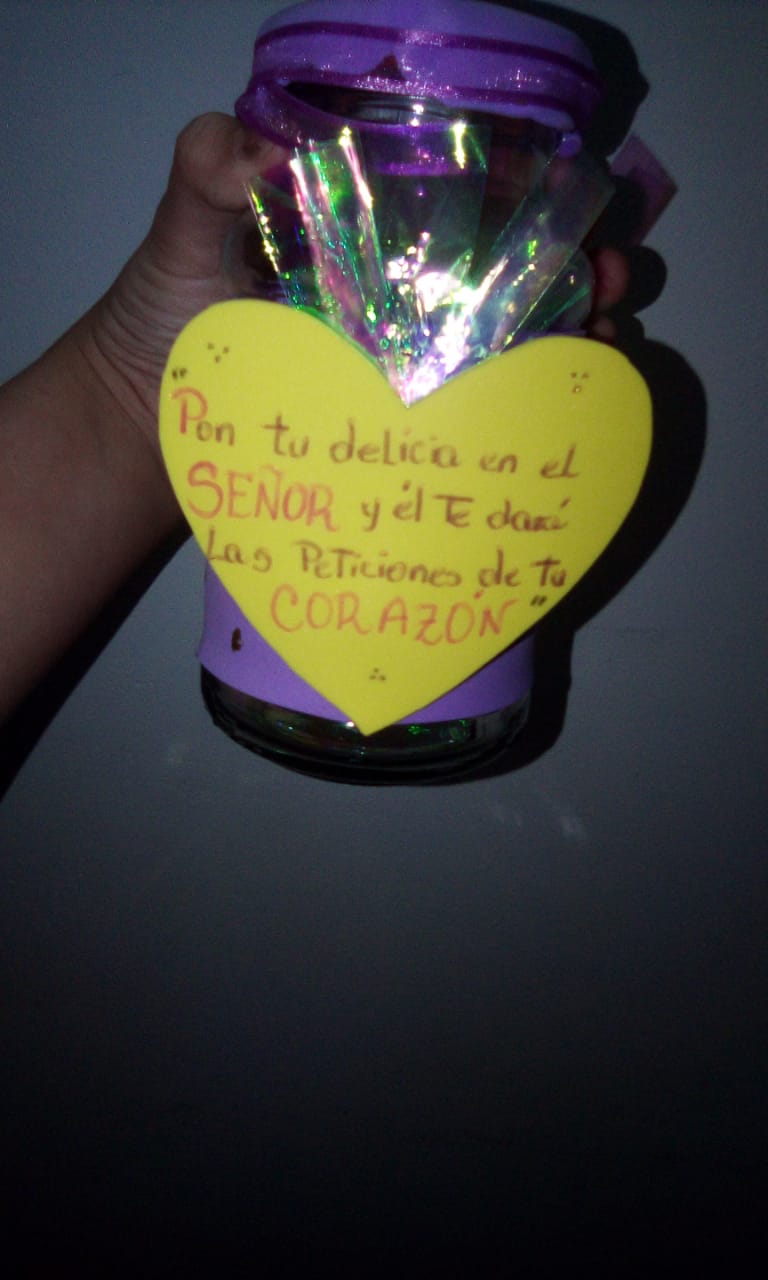 "Pon tu delicia en el
SEÑOR y él Te dará
Las PeTiciones de tu
CORAZÓN"